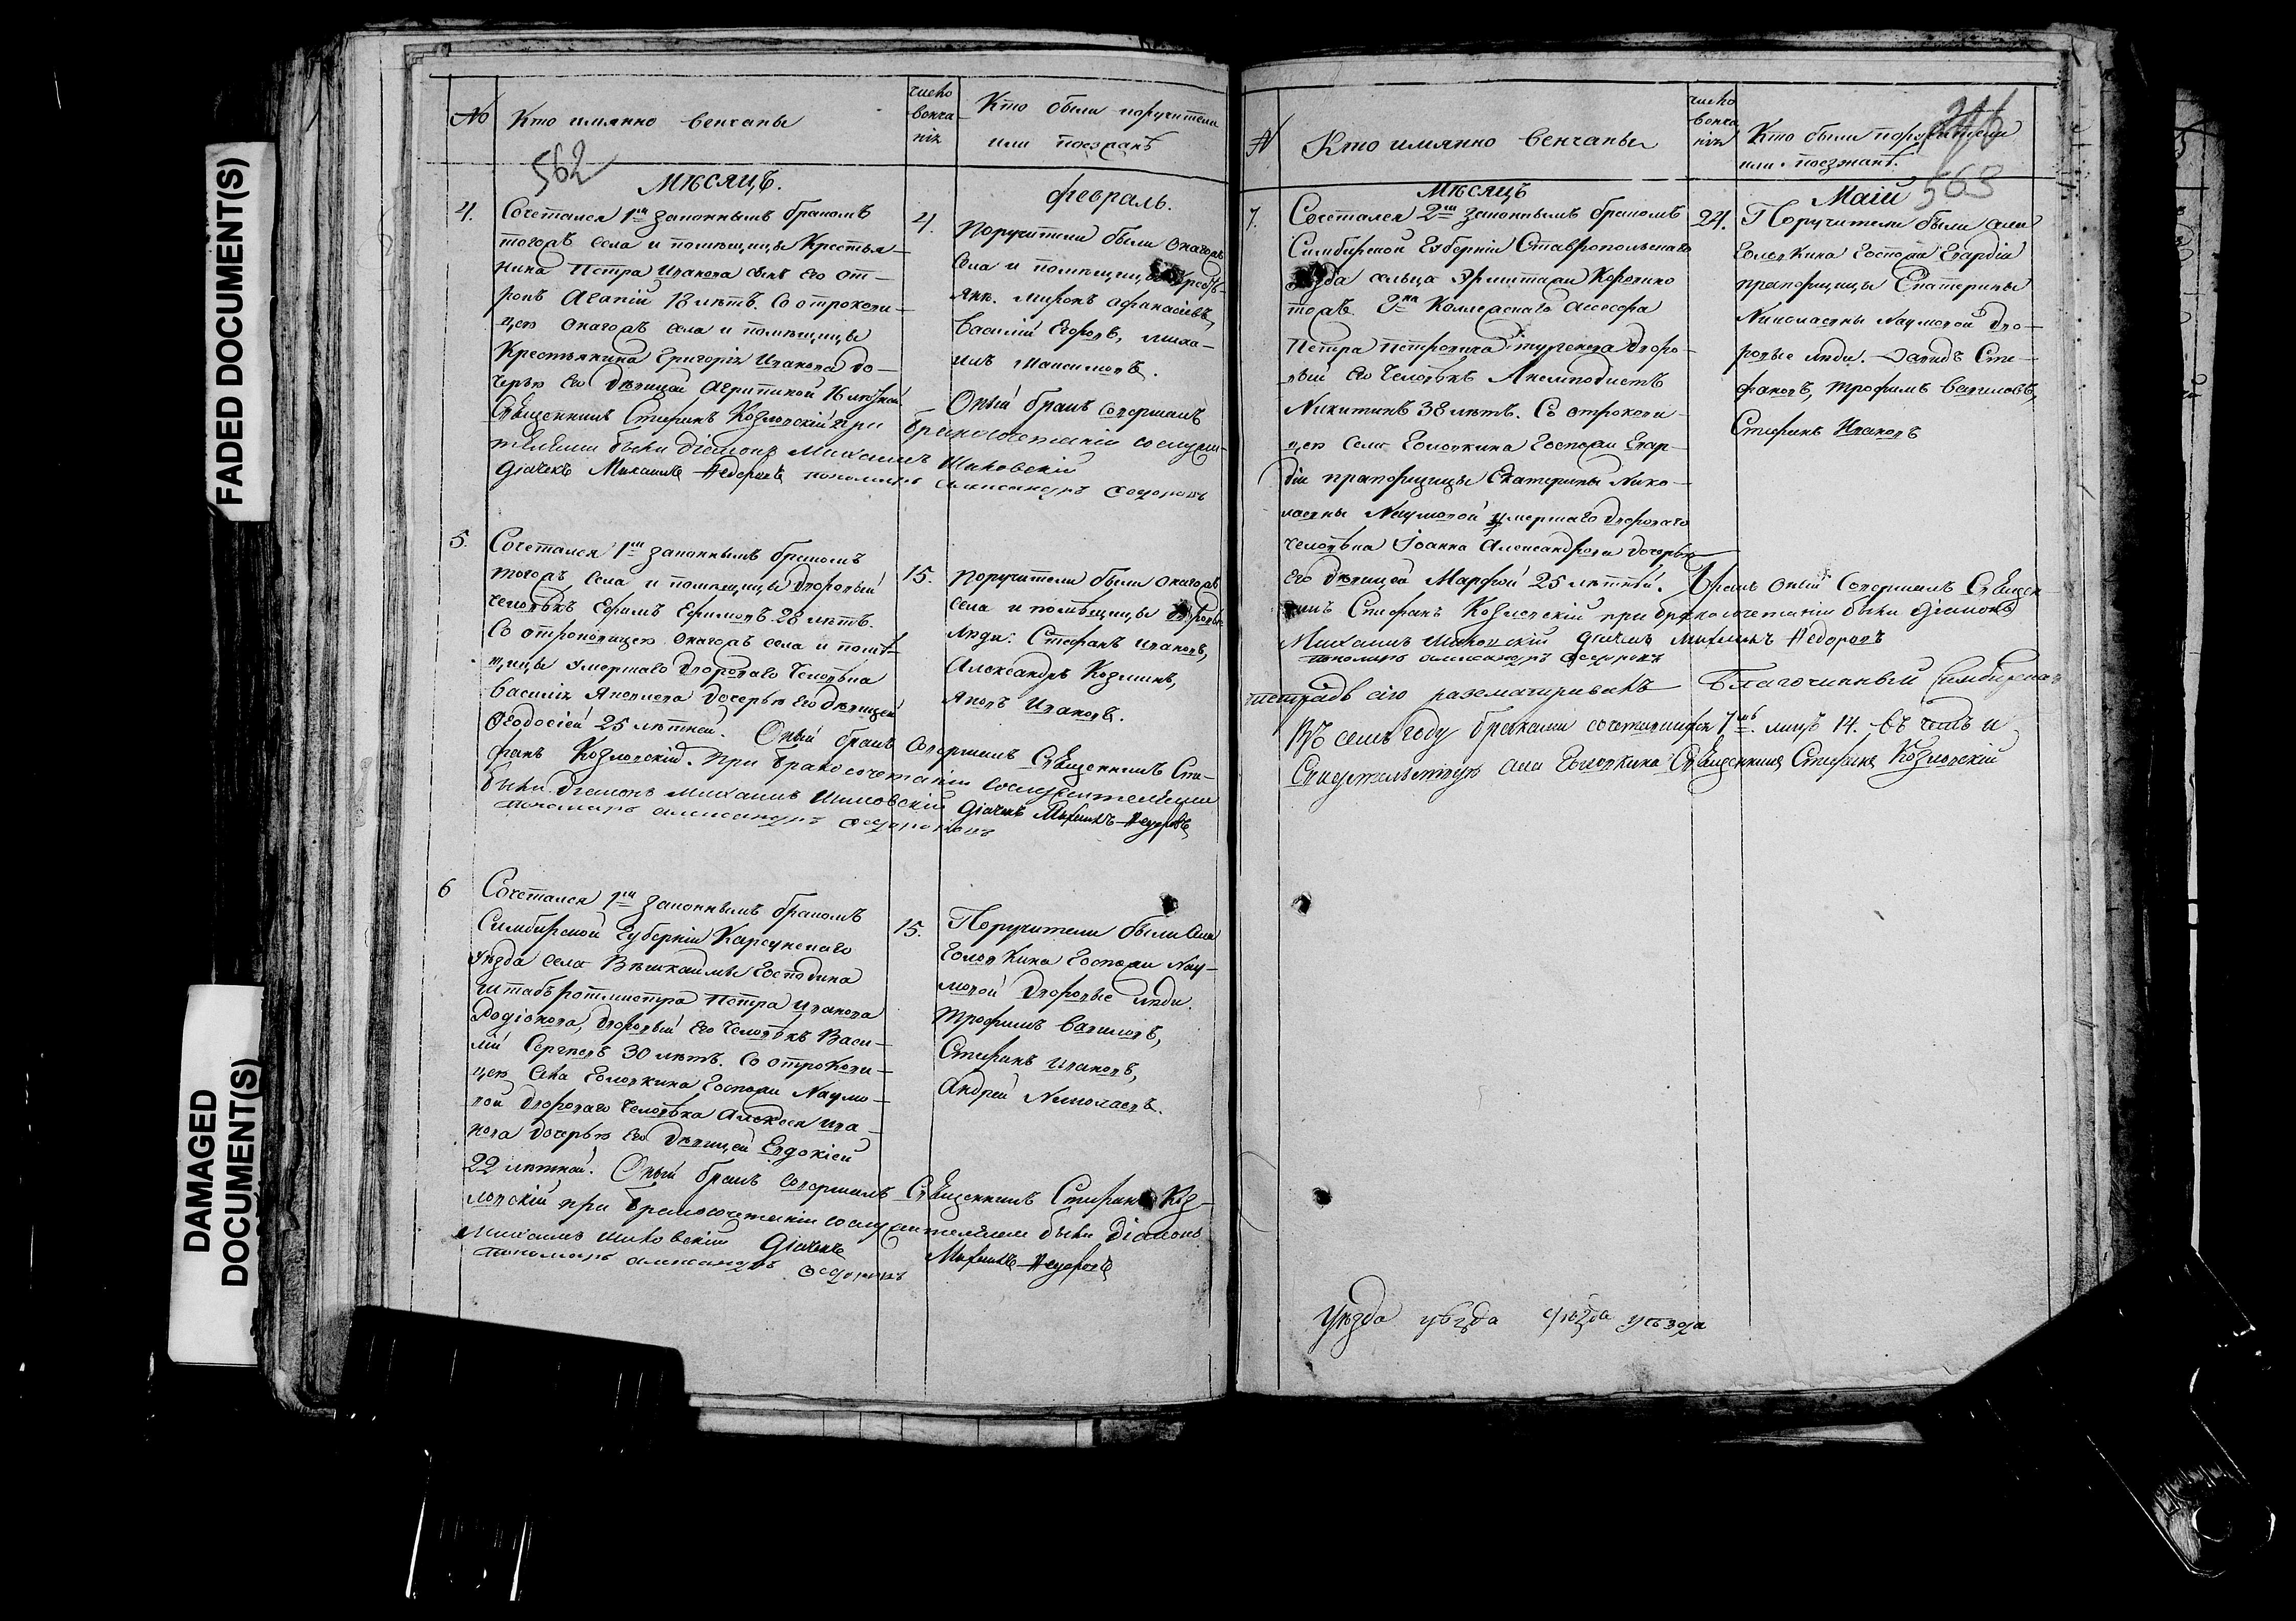 FADED DOCUMENT(S)
DAMAGED
DOCUMENT(S)
№
Кто имянно венчаны
число
венча
нія
Кто были поручители
или поезданѣ
562
Мѣсяцъ.
февраль.
4.
Сочетался 1м законнымъ бракомъ
тогожъ села и помѣщицы Крестья-
нина Петра Иванова сынъ его от-
рокъ Агапій 18 лѣтъ. Со отрокови-
цею онагожъ села и помѣщицы
Крестьянина Григорія Иванова до-
черью его дѣвицей Агрипиной 16 лѣтней
Священникъ Стефанъ Козловскій при бракосочетаніи сослужи-
телями были діаконъ Михаилъ Шиловскій
дячекъ Михаилъ Федоровъ пономарь Александръ Федоровъ
4.
Поручители были онагожъ
села и помѣщицы Кресть-
яне. Миронъ Афанасіевъ,
Василій Егоровъ, Миха-
илъ Максимовъ.
Оный бракъ совершалъ
5.
Сочетался 1м законнымъ бракомъ
тогожъ села и помѣщицы дворовый
человѣкъ Ефимъ Ефимовъ 28 лѣтъ.
Со отроковицею онагожъ села и помѣ-
щицы умершаго двороваго человѣка
Василія Яковлева дочерью его дѣвицей
Феодосіей 25 лѣтней. Оный бракъ совершалъ Священникъ Сте-
фанъ Козловскій. При бракосочетаніи сослужителями
были діаконъ Михаилъ Шиловскій дячекъ Михаилъ Федоровъ
пономарь Александръ Федоровъ
15.
Поручители были онагожъ
села и помѣщицы дворовые
люди: Стефанъ Ивановъ,
Александръ Козминъ,
Яковъ Ивановъ.
6
Сочетался 1м законнымъ бракомъ
Симбирской Губерніи Карсунскаго
уѣзда села Вешкаймы Господина
Штабъ ротмистра Петра Иванова
Родіонова, дворовый его человѣкъ Васи-
лій Сергѣевъ 30 лѣтъ. Со отрокови-
цею села Головкина Госпожи Наумо-
вой двороваго человѣка Алексея Ива-
нова дочерью его дѣвицей Евдокіей
22 лѣтней. Оный бракъ совершалъ Священникъ Стефанъ Коз-
ловскій при бракосочетаніи сослужителями были діаконъ
Михаилъ Шиловскій дячекъ Михаилъ Федоровъ
пономарь Александръ Федоровъ
15.
Поручители были села
Головкина Госпожи Нау-
мовой дворовые люди.
Трофимъ Вавиловъ,
Стефанъ Ивановъ,
Андрей Николаевъ.
№
Кто имянно венчаны
число
венча
нія
Кто были поручители
или поезжане.
563
Мѣсяцъ
Маій
7.
Сочетался 2м законнымъ бракомъ
Симбирской Губерніи Ставропольскаго
уѣзда сельца
тожъ Гна Коллежскаго Ассесора
Петра Петровича Тургенева дворо-
вый его человѣкъ Анемподистъ
Никитинъ 38 лѣтъ. Со отрокови-
цею села Головкина Госпожи Гвар-
діи прапорщицы Екатерины Нико-
лаевны Наумовой умершаго двороваго
человѣка Іоанна Александрова дочерью
его дѣвицей Марфой 25 лѣтней. Бракъ оный совершалъ Священ-
никъ Стефанъ Козловскій при бракосочетаніи были діаконъ
Михаилъ Шиловскій дячекъ Михаилъ Федоровъ
пономарь Александръ Федоровъ
24.
Поручители были села
Головкина Госпожи Гвардіи
прапорщицы Екатерины
Николаевны Наумовой дво-
ровые люди. Давидъ Сте-
фановъ, Трофимъ Вавиловъ,
Стефанъ Ивановъ
тетрадь сію разсматривалъ Благочинный
Въ семъ году браками сочетавшихся 7мь. лицъ 14. въ чемъ и
Свидетельствую села Головкина Священникъ Стефанъ Козловскій
Уѣзда уѣзда уѣзда уѣзда